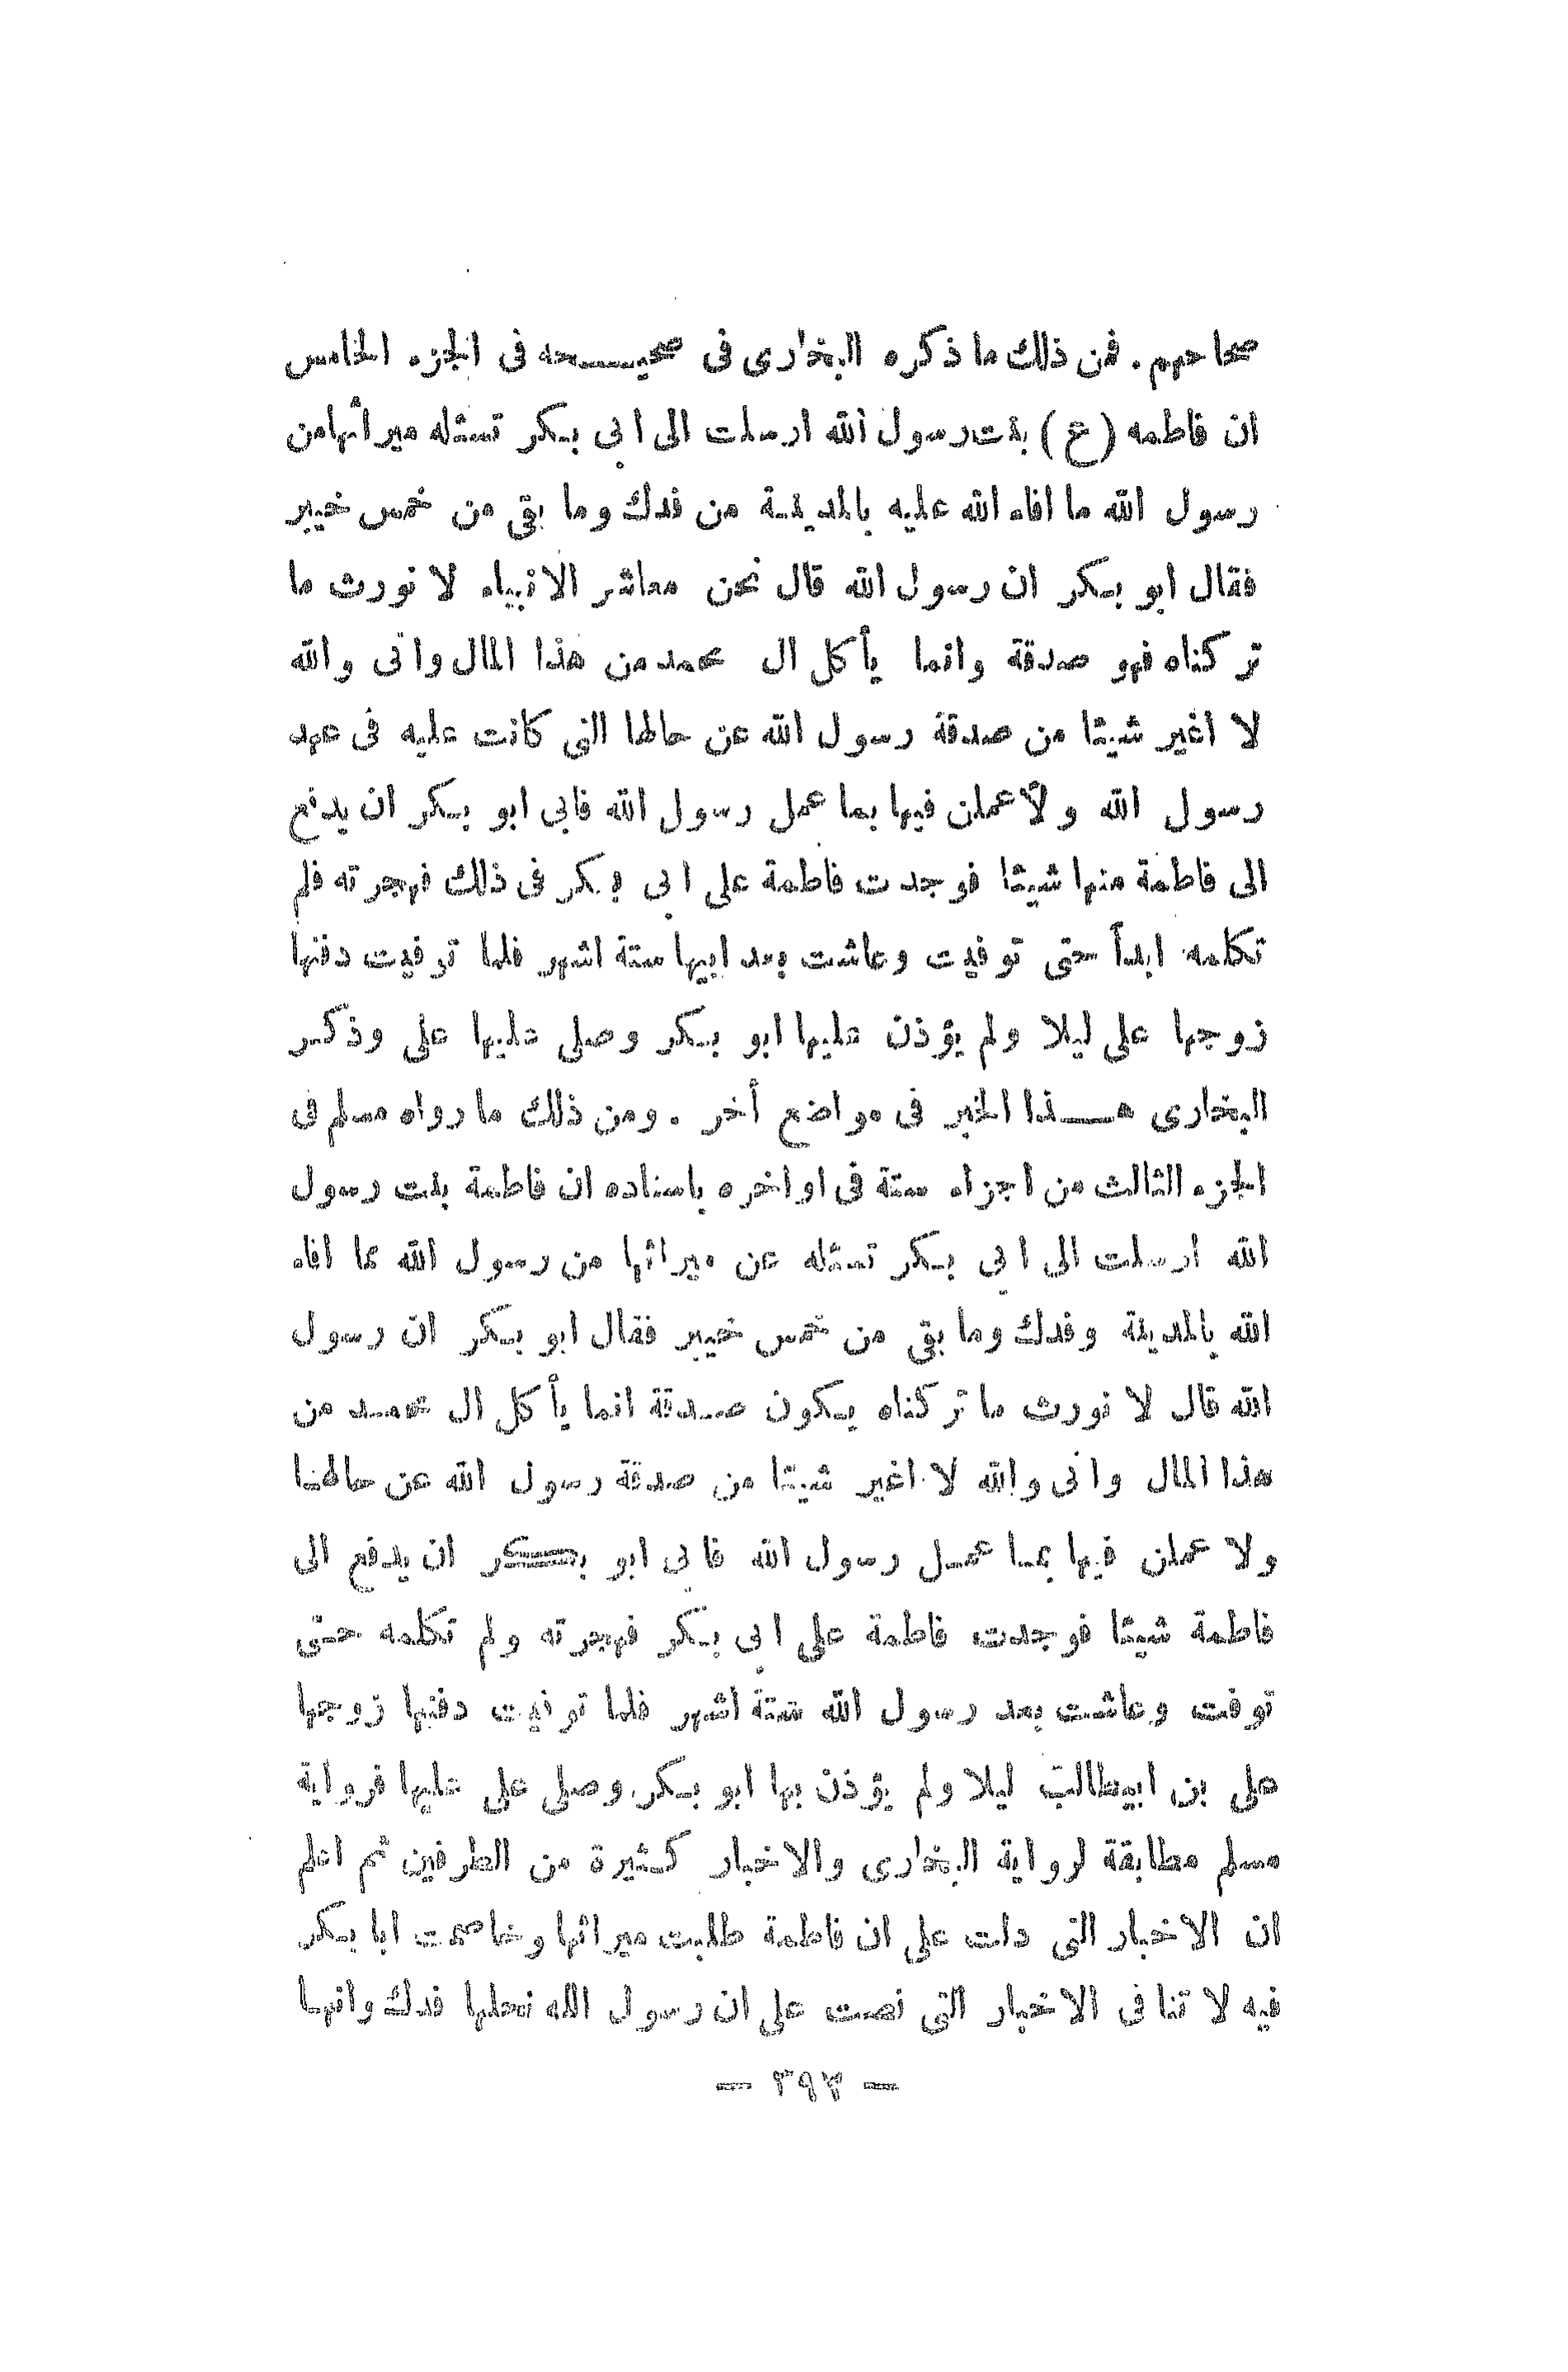 صحاحهم . فمن ذلك ما ذكره البخارى فى صحيـــحه فى الجزء الخامس
ان فاطمه (ع) بنت رسول الله ارسلت الى ابى بكر تسئله ميراثها من
رسول الله ما افاء الله عليه بالمدينة من فدك وما بقى من خمس خيبر
فقال ابو بكر ان رسول الله قال نحن معاشر الانبياء لا نورث ما
تركناه فهو صدقة وانما يأكل ال محمد من هذا المال وانى والله
لا اغير شيئا من صدقة رسول الله عن حالها التى كانت عليه فى عهد
رسول الله ولأعملن فيها بما عمل رسول الله فابى ابو بكر ان يدفع
الى فاطمة منها شيئا فوجدت فاطمة على ابى بكر فى ذلك فهجرته فلم
تكلمه ابدأ حتى توفيت وعاشت بعد ابيها ستة اشهر فلما توفيت دفنها
زوجها على ليلا ولم يؤذن عليها ابو بكر وصلى عليها على وذكر
البخارى هـــذا الخبر فى مواضع أخر . ومن ذلك ما رواه مسلم فى
الجزء الثالث من اجزاء ستة فى اواخره باسناده ان فاطمة بنت رسول
الله ارسلت الى ابى بكر تسئله عن ميراثها من رسول الله مما افاء
الله بالمدينة وفدك وما بقى من خمس خيبر فقال ابو بكر ان رسول
الله قال لا نورث ما تركناه يكون صدقة انما يأكل ال محمد من
هذا المال وانى والله لا اغير شيئا من صدقة رسول الله عن حالها
ولا عملن فيها بما عمل رسول الله فابى ابو بكر ان يدفع الى
فاطمة شيئا فوجدت فاطمة على ابى بكر فهجرته ولم تكلمه حتى
توفت وعاشت بعد رسول الله ستة اشهر فلما توفيت دفنها زوجها
على بن ابيطالب ليلا ولم يؤذن بها ابو بكر وصلى على عليها فرواية
مسلم مطابقة لرواية البخارى والاخبار كثيرة من الطرفين ثم اعلم
ان الاخبار التى دلت على ان فاطمة طلبت ميراثها وخاصمت ابا بكر
فيه لا تنافى الاخبار التى نصت على ان رسول الله نحلها فدك وانها
— ٣٩٣ —